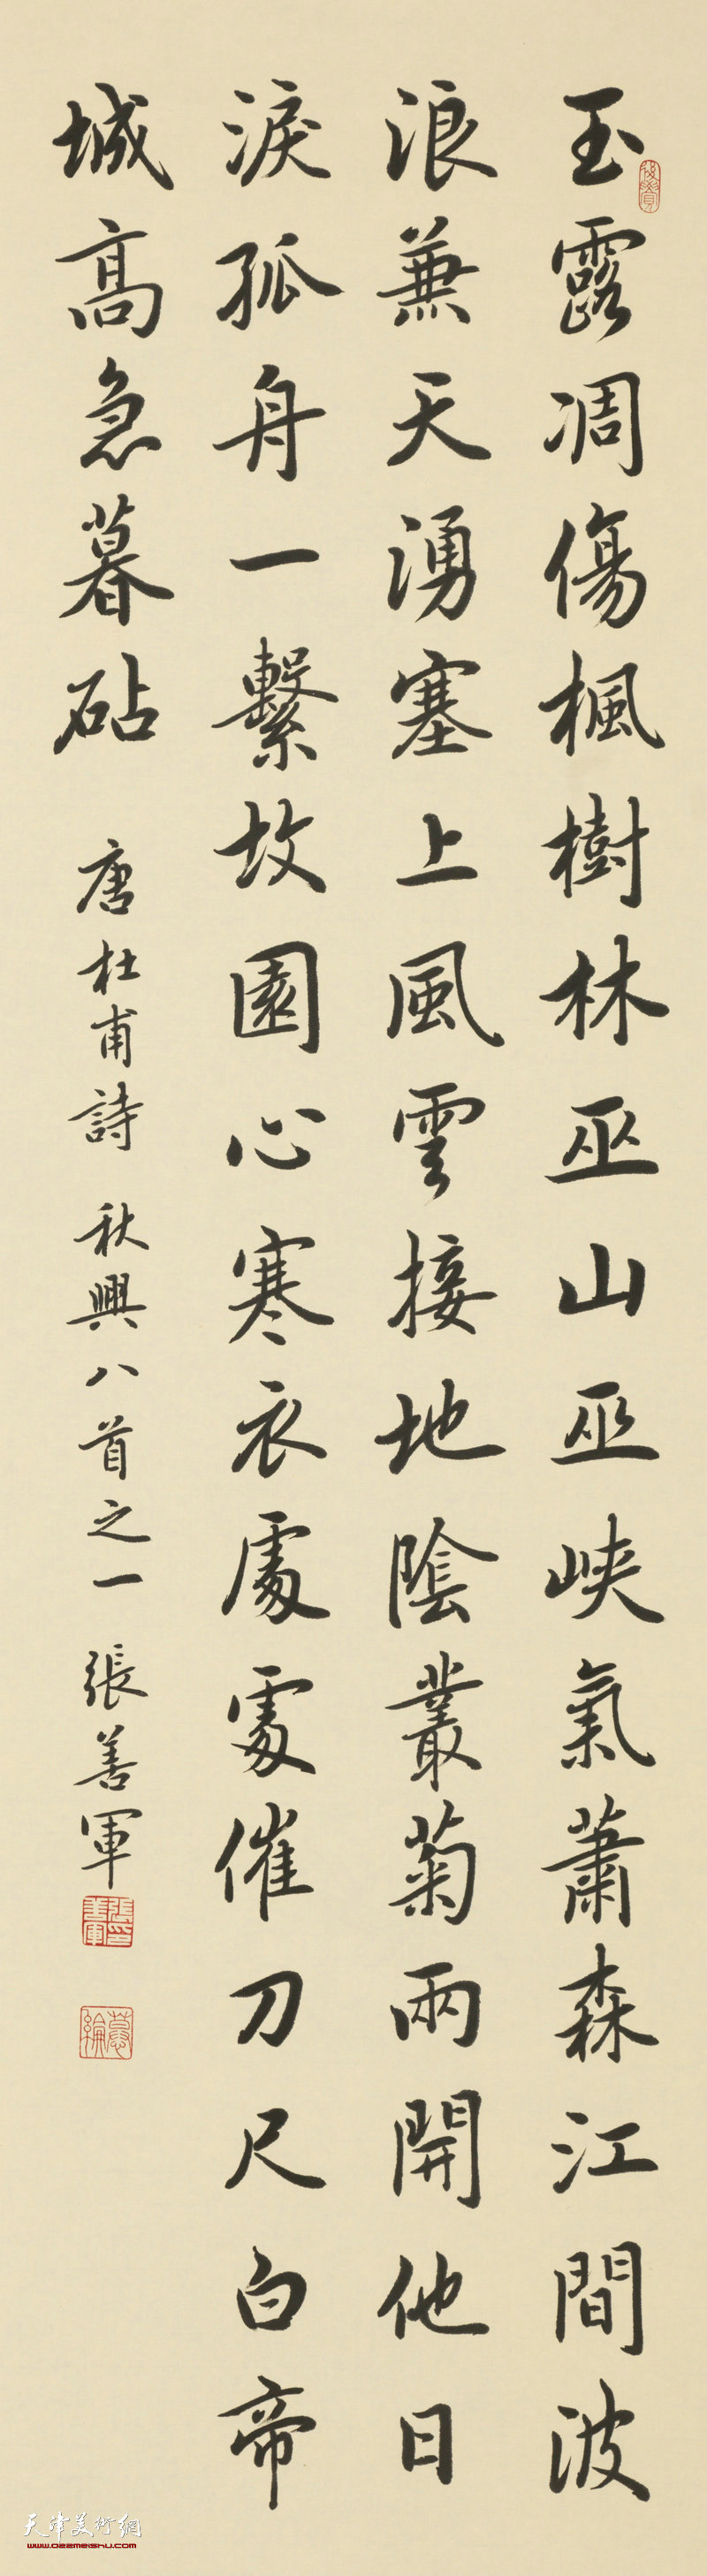 玉露凋傷楓樹林巫山巫峽氣蕭森江間波
浪兼天湧塞上風雲接地陰叢菊兩開他日
淚孤舟一繫故園心寒衣處處催刀尺白帝
城高急暮砧 唐杜甫詩 秋興八首之一 張善軍
張善軍印
天津美術網
www.022meishu.com